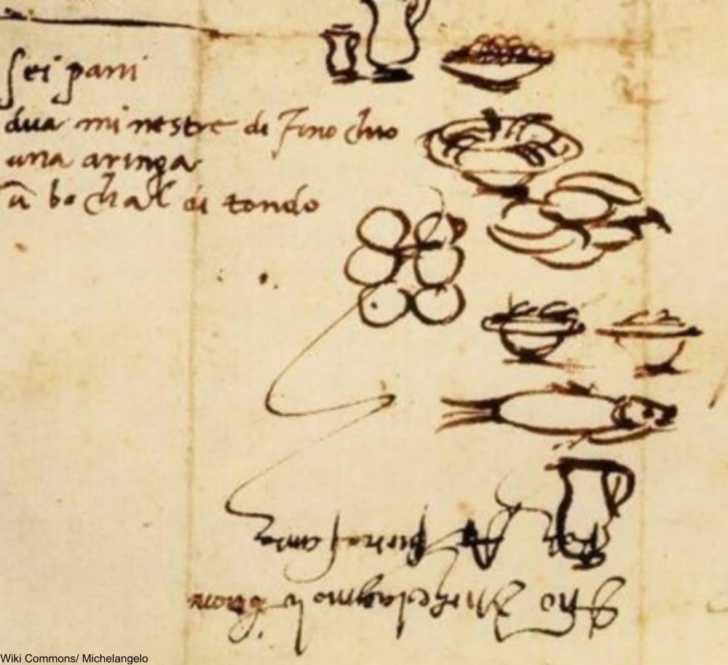 sei pani
dua minestre di finochio
una aringa
ū bochal di tondo
Michelagniolo
Wiki Commons/ Michelangelo